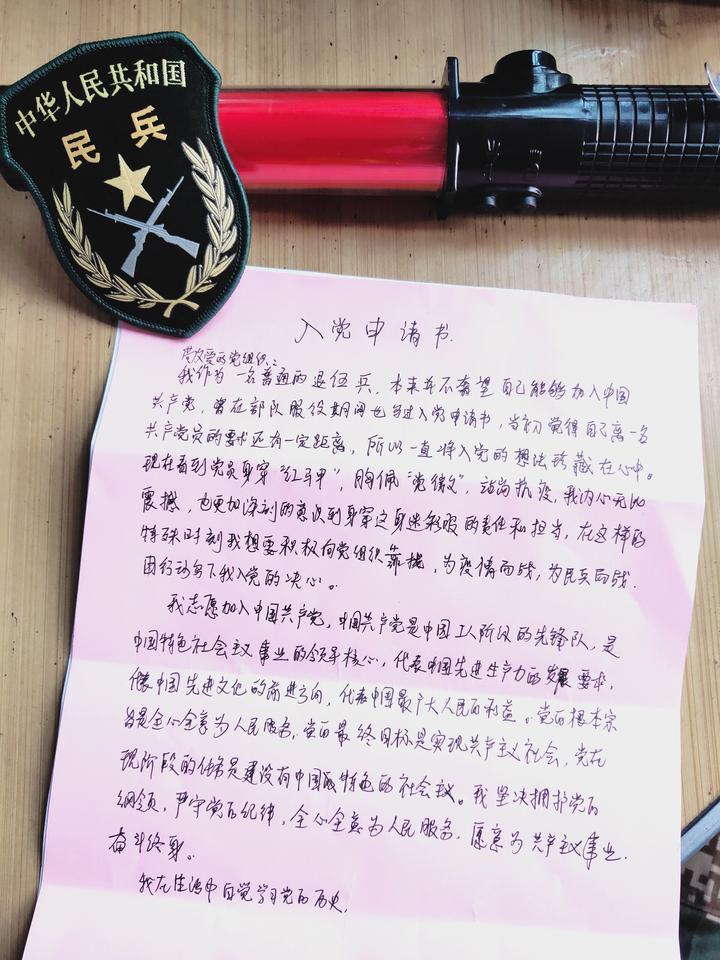 中华人民共和国
民兵
入党申请书
敬爱的党组织:
我作为一名普通的退伍兵,本来并不奢望自己能够加入中国
共产党,曾在部队服役期间也写过入党申请书,当初觉得自己离一名
共产党员的要求还有一定距离,所以一直将入党的想法珍藏在心中。
现在看到党员身穿“红马甲”,胸佩“党徽”,站岗抗疫,我内心无比
震撼,也更加深刻的意识到身穿这身迷彩服的责任和担当,在这样的
特殊时刻我想要积极向党组织靠拢,为疫情而战,为民兵而战.
用行动写下我入党的决心。
我志愿加入中国共产党,中国共产党是中国工人阶级的先锋队,是
中国特色社会主义事业的领导核心,代表中国先进生产力的发展要求,
代表中国先进文化的前进方向,代表中国最广大人民的利益。党的根本宗
旨是全心全意为人民服务,党的最终目标是实现共产主义社会,党在
现阶段的任务是建设有中国特色的社会主义。我坚决拥护党的
纲领,严守党的纪律,全心全意为人民服务,愿意为共产主义事业
奋斗终身。
我在生活中自觉学习党的历史,